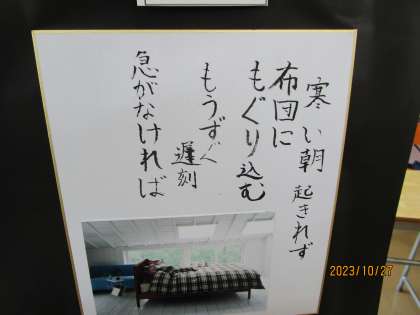 寒い朝
起きれず
布団に
もぐり込む
もうすぐ
遅刻
急がなければ
2023/10/27